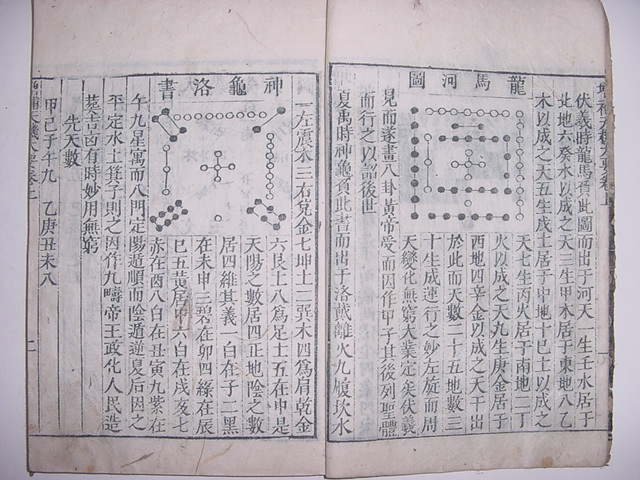 龍馬河圖
伏羲時龍馬負此圖而出于河天一生壬水居于
北地六癸水以成之天三生甲木居于東地八乙
木以成之天五生戊土居于中地十己土以成之
天七生丙火居于南地二丁
火以成之天九生庚金居于
西地四辛金以成之天干出
於此而天數二十五地數三
十生成運行之妙左旋而周
天變化無窮大業定矣伏羲
見而遂畫八卦黃帝受而因作甲子其後列聖體
而行之以詔後世
夏禹時神龜負此書而出于洛戴離火九履坎水
神龜洛書
一左震木三右兌金七坤土二巽木四爲肩乾金
六艮土八爲足土五在中是
天陽之數居四正地陰之數
居四維其義一白在子二黑
在未申三碧在卯四綠在辰
巳五黃居中六白在戌亥七
赤在酉八白在丑寅九紫在
午九星寓而八門定陽遁順而陰遁逆夏后因之
平定水土箕子則之因作九疇帝王政化人民造
葬吉凶有時妙用無窮
先天數
甲己子午九 乙庚丑未八